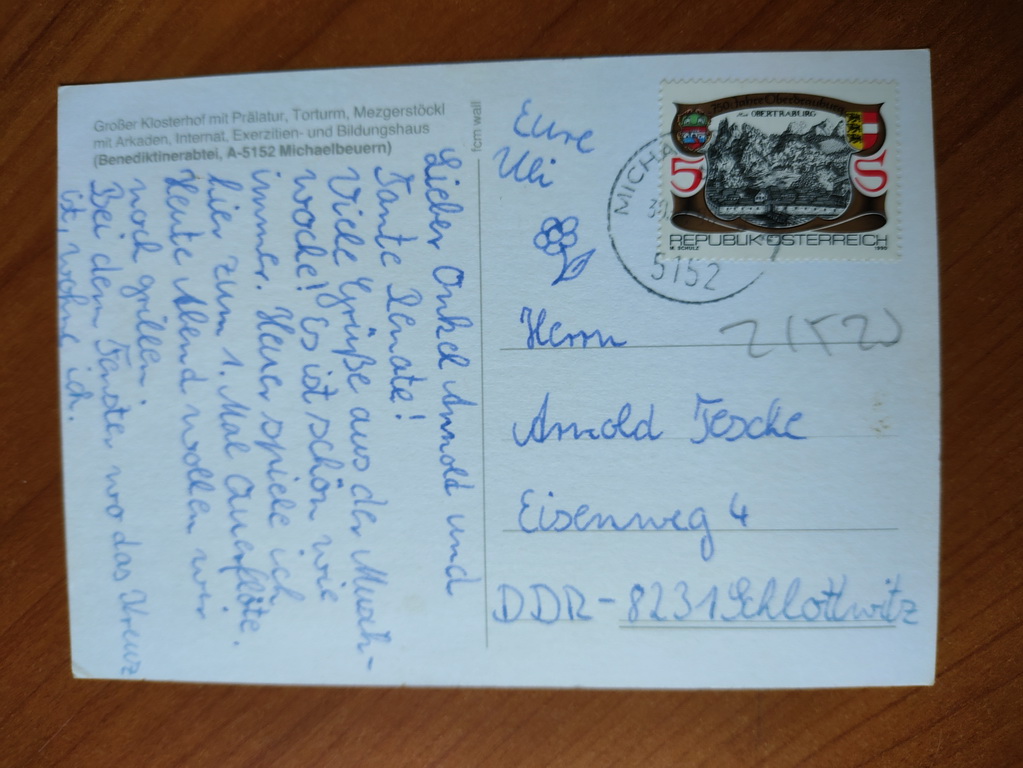 Großer Klosterhof mit Prälatur, Torturm, Mezgerstöckl
mit Arkaden, Internat, Exerzilien- und Bildungshaus
(Benediktinerabtei, A-5152 Michaelbeuern)
fcm wall
Lieber Onkel Arnold und
Tante Renate!
Viele Grüße aus der Musik-
woche! Es ist schön wie
immer. Heuer spiele ich
hier zum 1. Mal Querflöte.
Heute Abend wollen wir
noch grillen.
Bei dem Fenster, wo das Kreuz
ist, wohne ich.
Eure
Uli
750 Jahre Oberdrauburg
OBERTRABURG
5 S
REPUBLIK ÖSTERREICH
M. SCHULZ 1990
MICHA
5152
Herrn
Arnold Jeschke
Eisenweg 4
DDR-8231 Schlottwitz